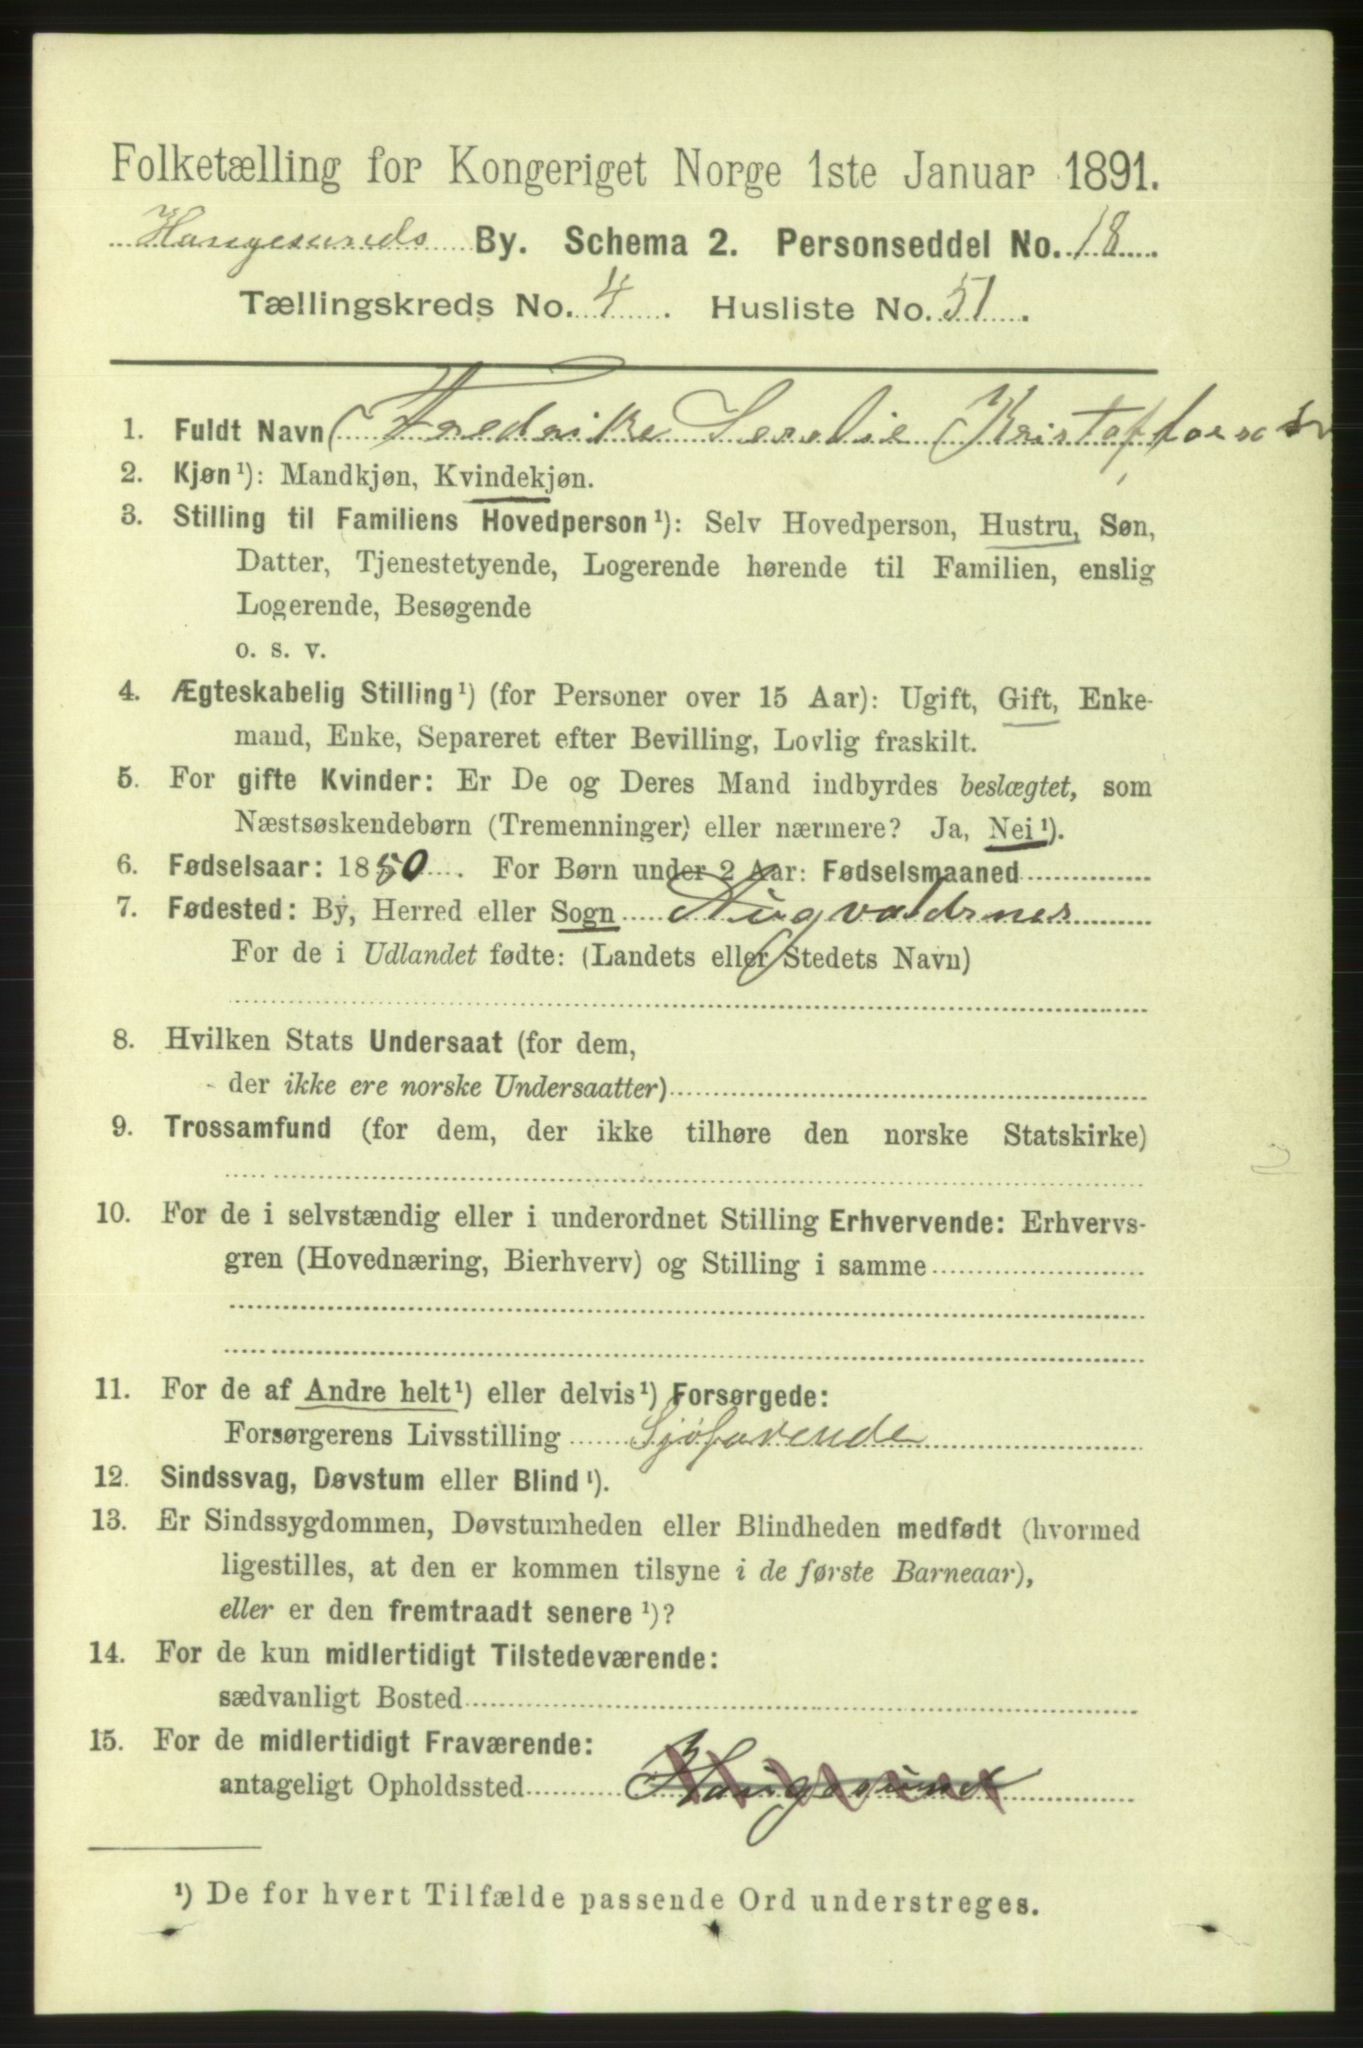 Folketælling for Kongeriget Norge 1ste Januar 1891.
Haugesunds By. Schema 2. Personseddel No. 18.
Tællingskreds No. 4. Husliste No. 51.
1. Fuldt Navn Fredrike Serelie Kristoffersen
2. Kjøn¹): Mandkjøn, Kvindekjøn.
3. Stilling til Familiens Hovedperson¹): Selv Hovedperson, Hustru, Søn,
Datter, Tjenestetyende, Logerende hørende til Familien, enslig
Logerende, Besøgende
o. s. v.
4. Ægteskabelig Stilling¹) (for Personer over 15 Aar): Ugift, Gift, Enke-
mand, Enke, Separeret efter Bevilling, Lovlig fraskilt.
5. For gifte Kvinder: Er De og Deres Mand indbyrdes beslægtet, som
Næstsøskendebørn (Tremenninger) eller nærmere? Ja, Nei¹).
6. Fødselsaar: 1850. For Børn under 2 Aar: Fødselsmaaned
7. Fødested: By, Herred eller Sogn Augvaldsnes
For de i Udlandet fødte: (Landets eller Stedets Navn)
8. Hvilken Stats Undersaat (for dem,
der ikke ere norske Undersaatter)
9. Trossamfund (for dem, der ikke tilhøre den norske Statskirke)
10. For de i selvstændig eller i underordnet Stilling Erhvervende: Erhvervs-
gren (Hovednæring, Bierhverv) og Stilling i samme
11. For de af Andre helt¹) eller delvis¹) Forsørgede:
Forsørgerens Livsstilling Sjøfarende
12. Sindssvag, Døvstum eller Blind¹).
13. Er Sindssygdommen, Døvstumheden eller Blindheden medfødt (hvormed
ligestilles, at den er kommen tilsyne i de første Barneaar),
eller er den fremtraadt senere¹)?
14. For de kun midlertidigt Tilstedeværende:
sædvanligt Bosted
15. For de midlertidigt Fraværende:
antageligt Opholdssted Haugesund
¹) De for hvert Tilfælde passende Ord understreges.